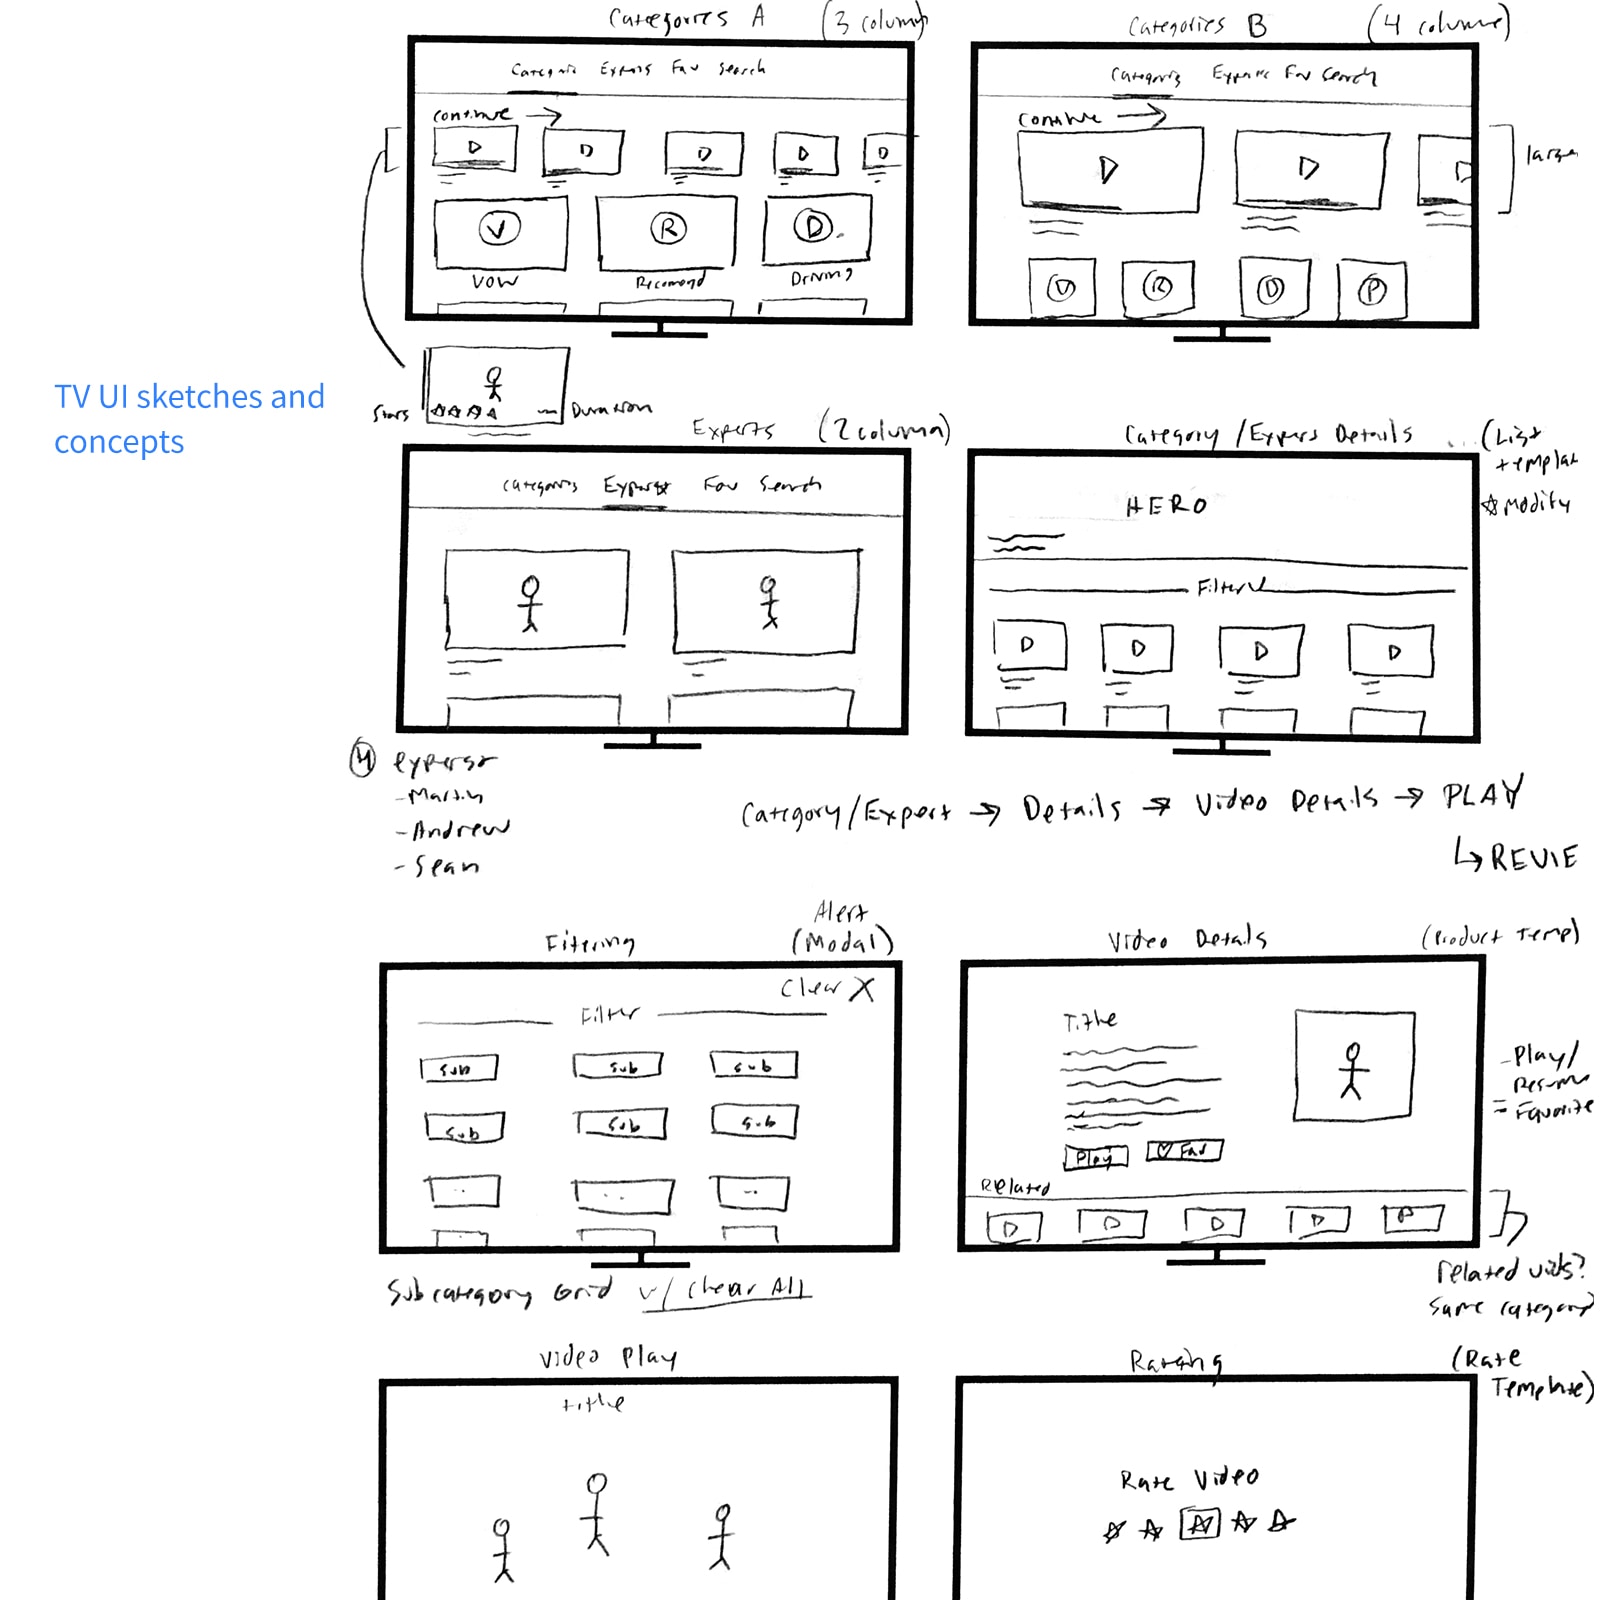 TV UI sketches and
concepts
Categories A (3 column)
Expers Fav Search
Continue →
V R D
VOW Recomend Driving
Stars Duration
Categories B (4 column)
Fav Search
Continue →
V R D P
Experts (2 column)
Categories Fav Search
Category / Expers Details ... (List
☆ Modify
HERO
Filter
④
- Martin
- Andrew
- Sean
Category/Expert → Details → Video Details → PLAY
↳ REVIE
Filtering Alert
(Modal)
Clear X
Filter
Sub Sub Sub
Sub Sub Sub
Subcategory Grid w/ Clear All
Video Details (Product Temp)
Title
Play ♡ Fav
- Play/
Resume
- Favorite
Related
Related vids?
Same category
Video Play
Title
Rating (Rate
Template)
Rate Video